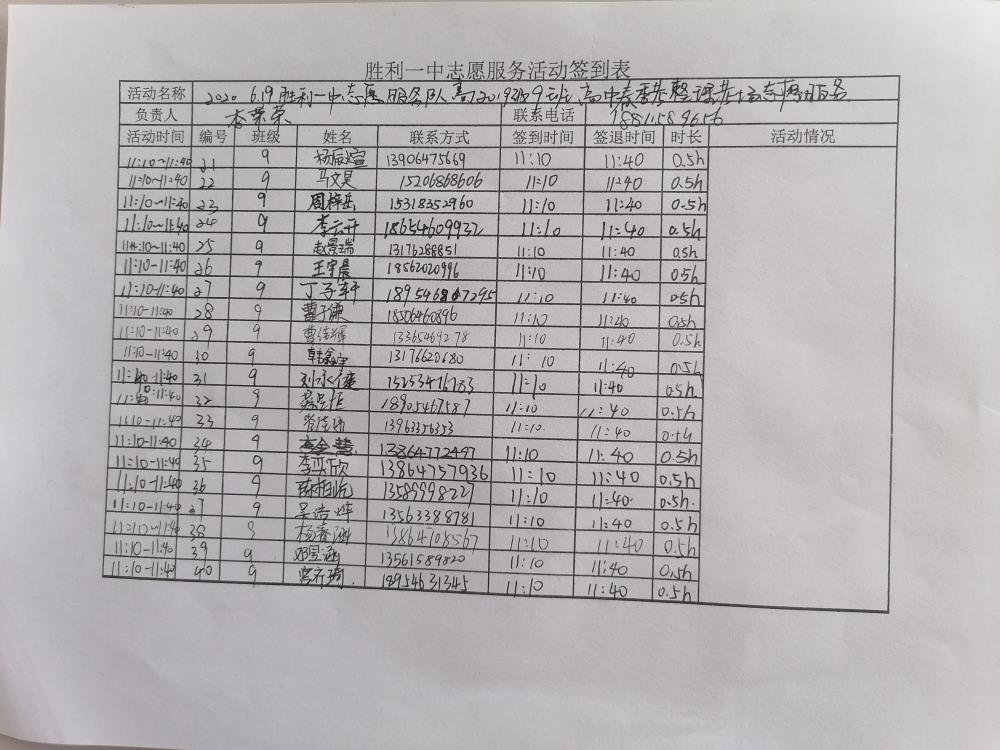 胜利一中志愿服务活动签到表
活动名称 2020 6.19胜利一中志愿服务队高2019级9班
负责人 李荣荣 联系电话 18811589656
活动时间 编号 班级 姓名 联系方式 签到时间 签退时间 时长 活动情况
11:10~11:40 21 9 杨辰煊 13906475669 11:10 11:40 0.5h
11:10~11:40 22 9 马文昊 15206868606 11:10 11:40 0.5h
11:10~11:40 23 9 周梓岳 15318352960 11:10 11:40 0.5h
11:10~11:40 24 9 李云开 18654609932 11:10 11:40 0.5h
11:10-11:40 25 9 赵景瑞 13176288851 11:10 11:40 0.5h
11:10-11:40 26 9 王宇晨 18562020996 11:10 11:40 0.5h
11:10-11:40 27 9 丁子轩 11:10 11:40 0.5h
11:10-11:40 28 9 曹子谦 18506460896 11:10 11:40 0.5h
11:10-11:40 29 9 13365469278 11:10 11:40 0.5h
11:10-11:40 30 9 13176620680 11:10 11:40 0.5h
11:10-11:40 31 9 15253476783 11:10 11:40 0.5h
11:10-11:40 32 9 18905467587 11:10 11:40 0.5h
11:10-11:40 33 9 13963356353 11:10 11:40 0.5h
11:10-11:40 34 9 13864772497 11:10 11:40 0.5h
11:10-11:40 35 9 李奕欣 13864757936 11:10 11:40 0.5h
11:10-11:40 36 9 13589998227 11:10 11:40 0.5h
11:10-11:40 37 9 吴浩烨 13563388781 11:10 11:40 0.5h
11:10~11:40 38 9 杨春 13864708567 11:10 11:40 0.5h
11:10-11:40 39 9 邓昱涵 13561589820 11:10 11:40 0.5h
11:10-11:40 40 9 宫齐琦 18954631345 11:10 11:40 0.5h